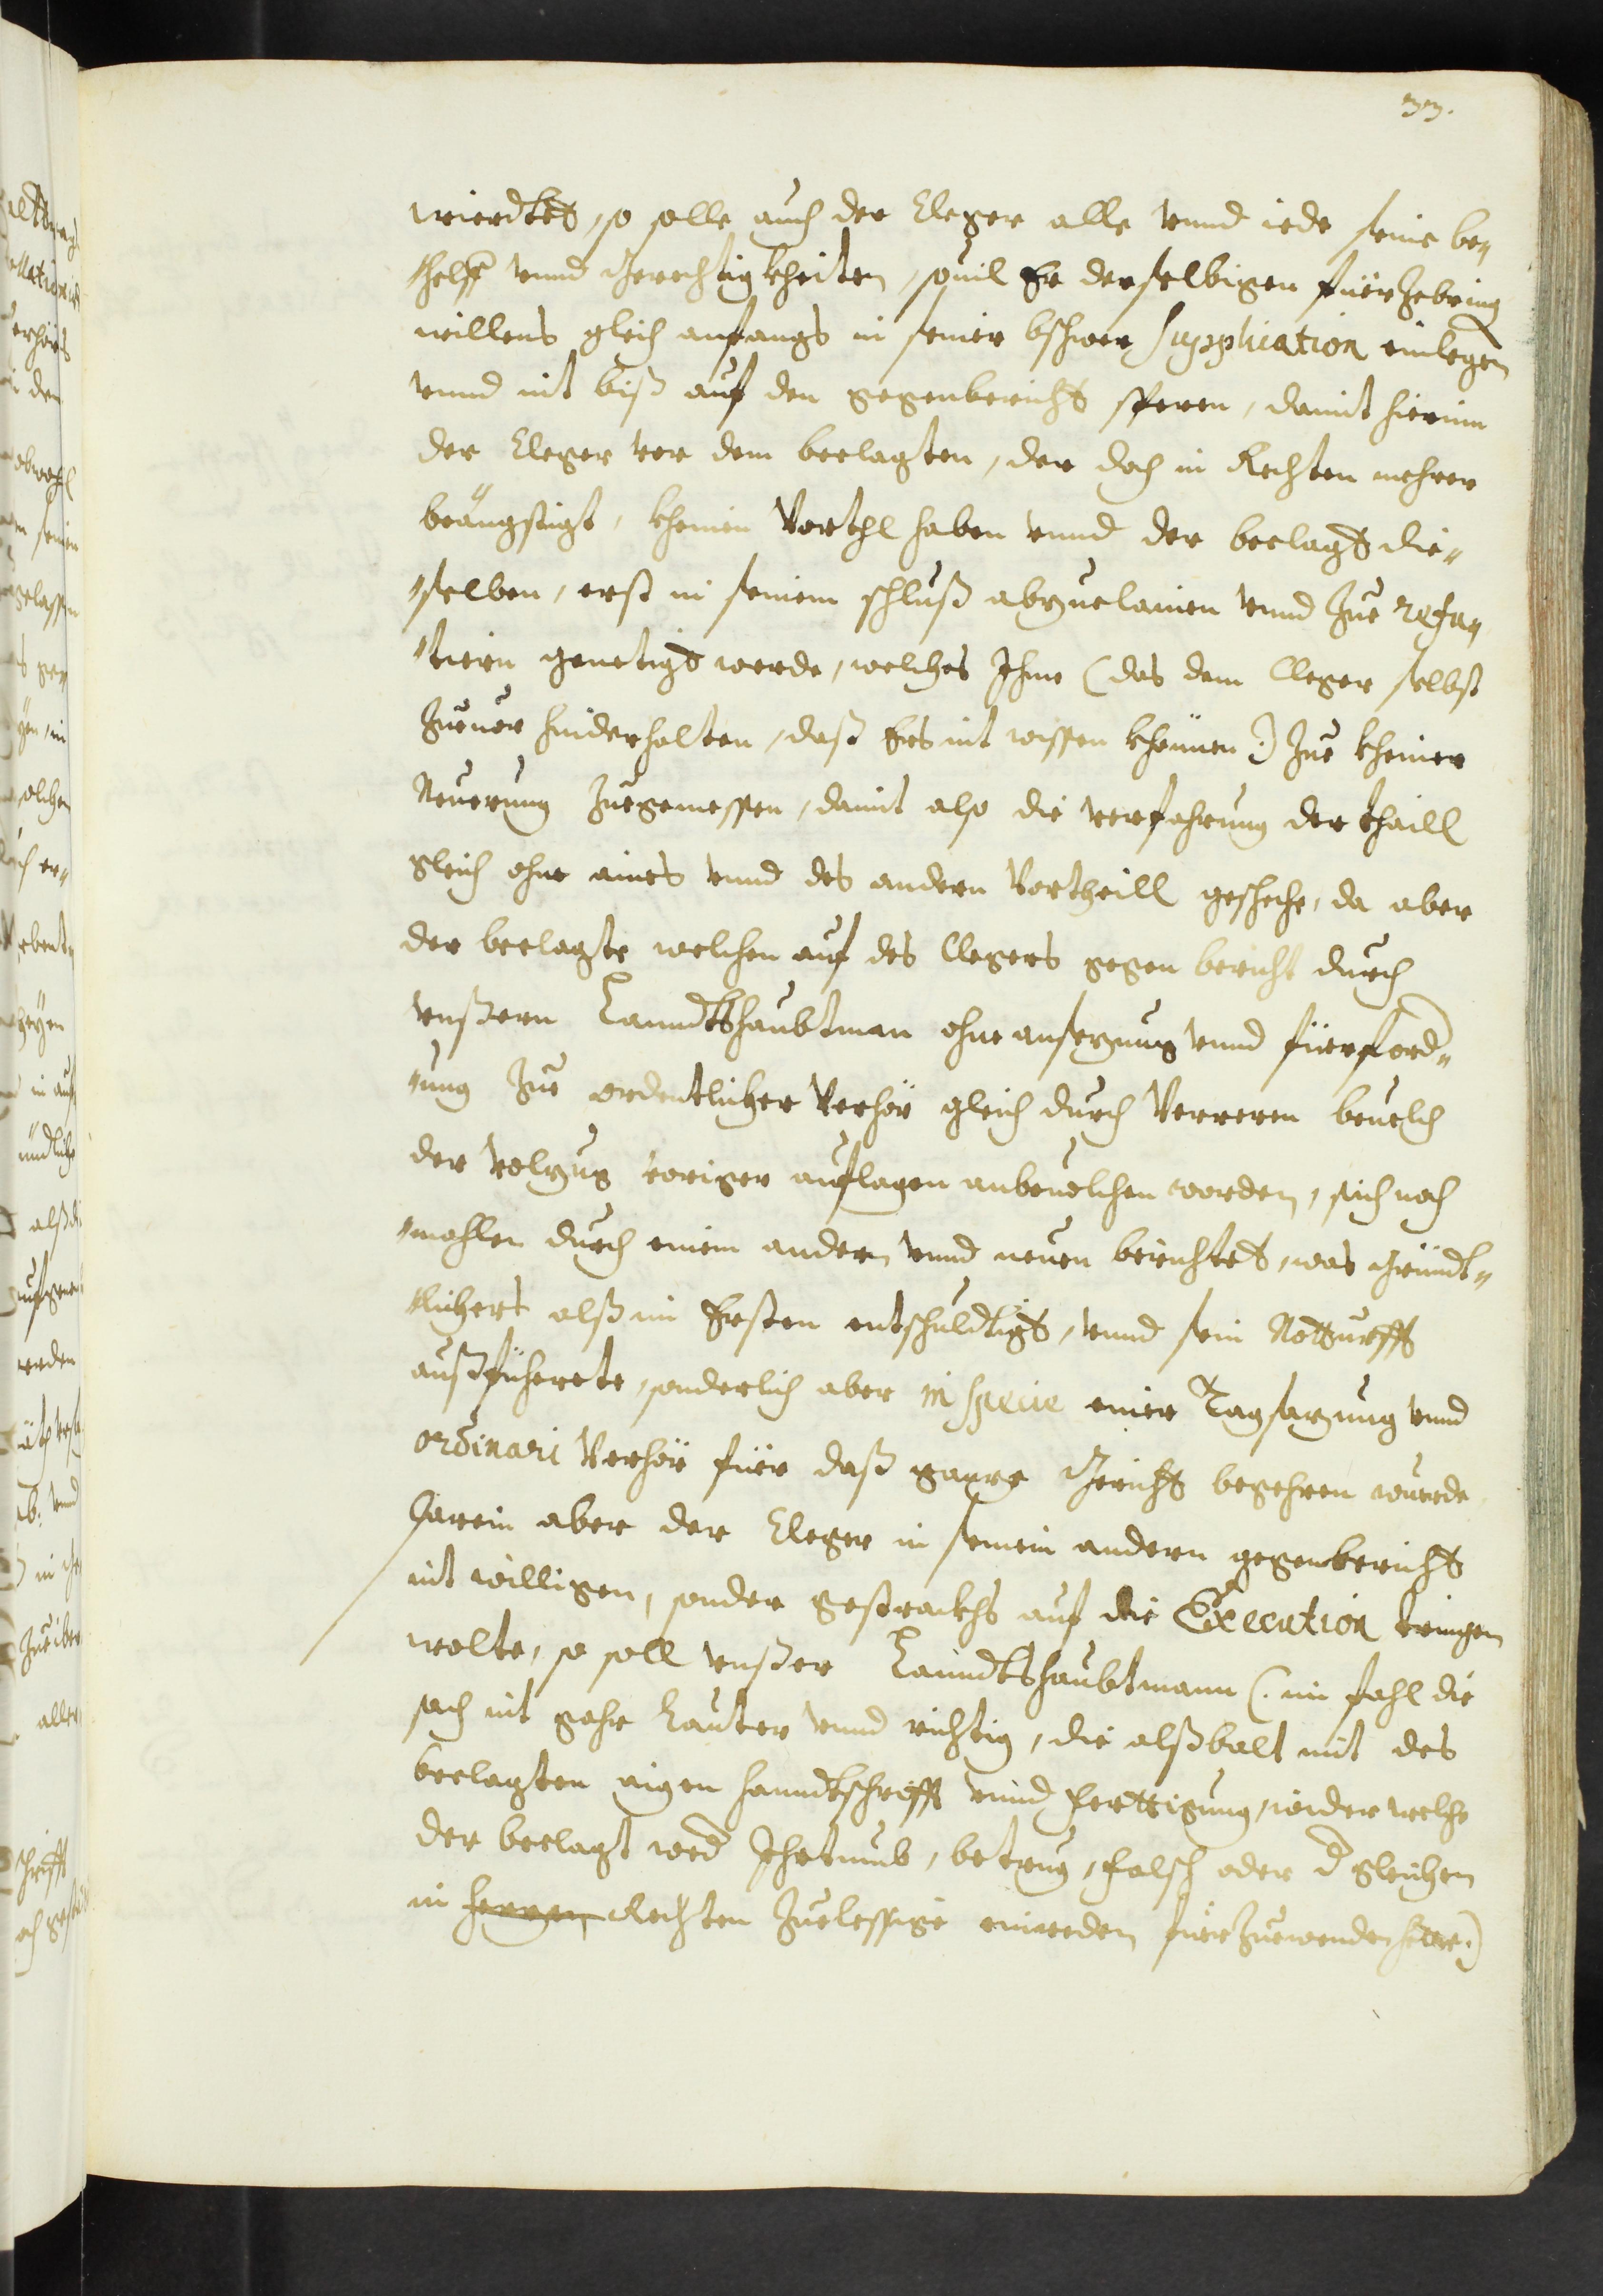 33.
wierdtet, so solle auch der Cleger alle vnnd iede seine be¬
helff vnnd Gerechtigkheiten, souil Er derselbigen fürzebring
willens gleich anfangs in seiner bschwer Supplication einlegen
vnnd nit biß auf den gegenbericht sparen, damit hierinn
der Cleger vor dem beclagten, der doch in Rechten mehrer
beängstigt, kheinen Vorthl haben vnnd der beclagt die¬
selben, erst in seinem schluß abzuelainen vnnd Zue refu¬
tiern genetigt werde, welches Ihme (das dem Cleger selbst
Zuuor hinderhalten, daß Ers nit wissen khönnen:) Zue kheiner
Neuerung Zuegemessen, damit also die verfahrung der thaill
gleich ohne aines vnnd des andern Vortheill geschehe, da aber
der beclagte welchen auf des Clegers gegen bericht durch
vnßern Lanndtshaubtman ohne ansezung vnnd fürford¬
ung Zue ordentlicher Verhör gleich durch Verreren beuelch
der volzug voriger auflagen anbeuolchen worden, sich noch
mahlen durch einem andern vnnd neuen berichtet, was gründt¬
lichers alß im Ersten entschuldtigt, vnnd sein Notturfft
außfüherete, sonderlich aber in specie einer Tagsazung vnnd
ordinari Verhör für daß ganze Gericht begehren wurde
darein aber der Cleger in seinem andern gegenbericht
nit willigen, sonder gestrackhs auf die Execution tringen
wolte, so soll vnßer Lanndtshaubtmann (: im fahl die
sach nit gahr Lauter vnnd richtig, die alßbalt mit des
beclagten aigen hanndtschrifft vnnd ferttigung, wider welche
der beclagt wed Ihrtumb, betrug, falsch oder dgleichen
in Rechten Zuelessige einreden fürzuwenden hette:)